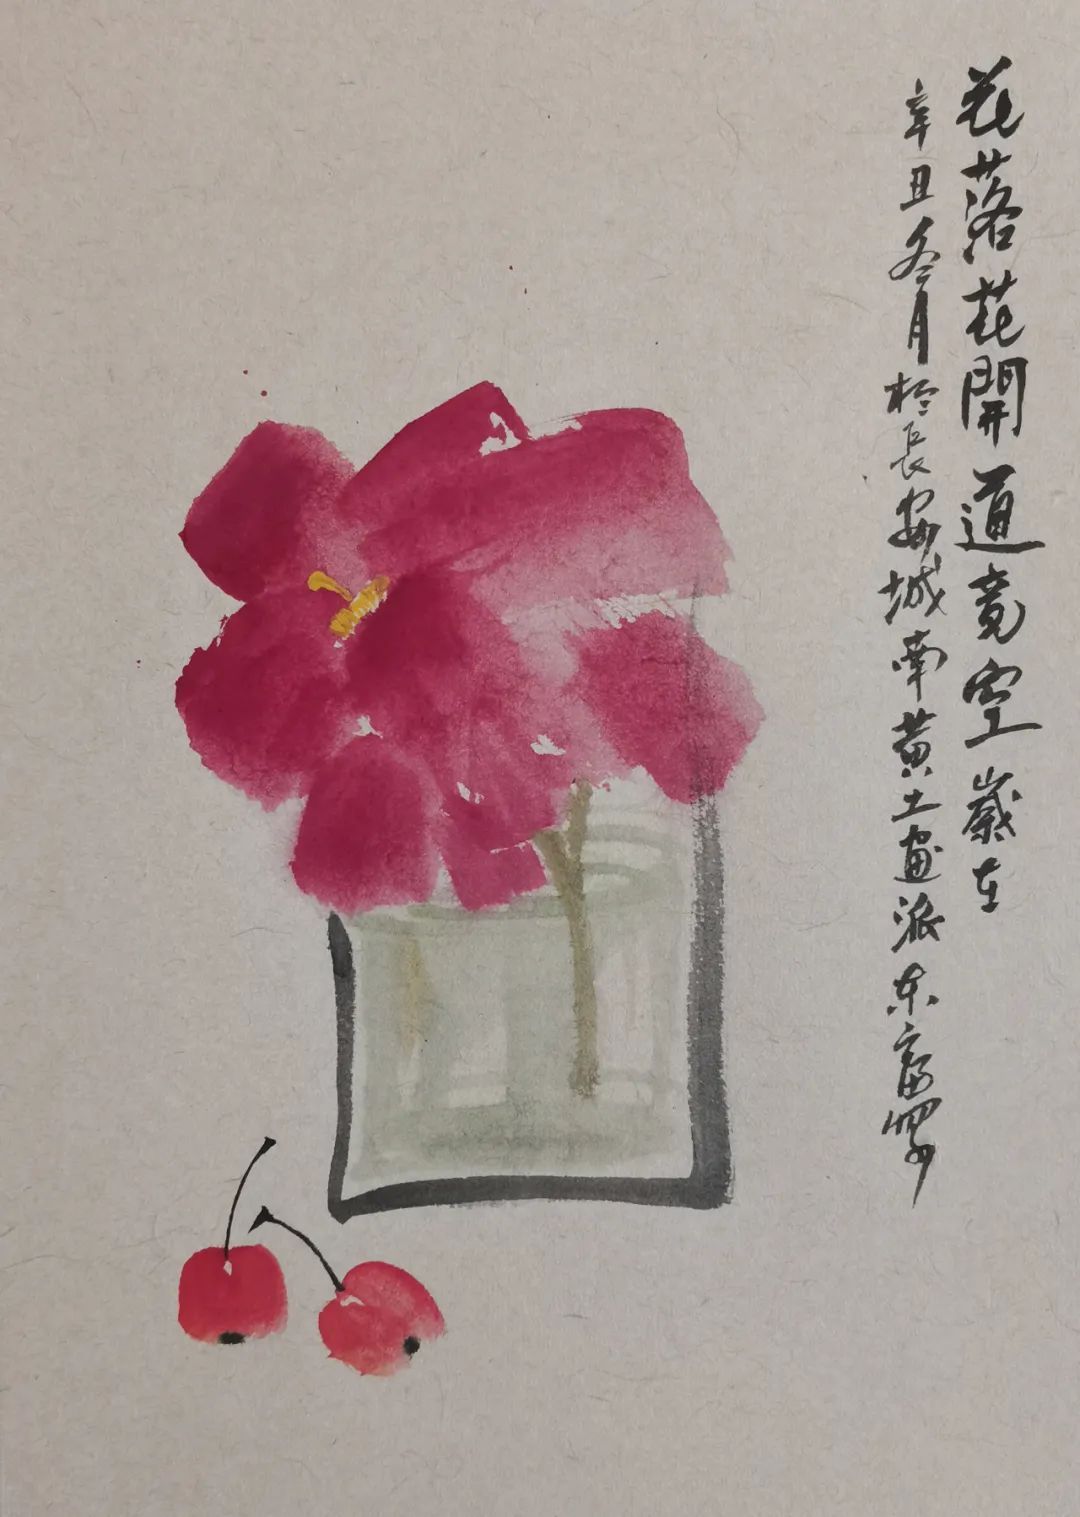 花落花開道竟空歲在
辛丑冬月於長安城南黄土畫派东齋罗